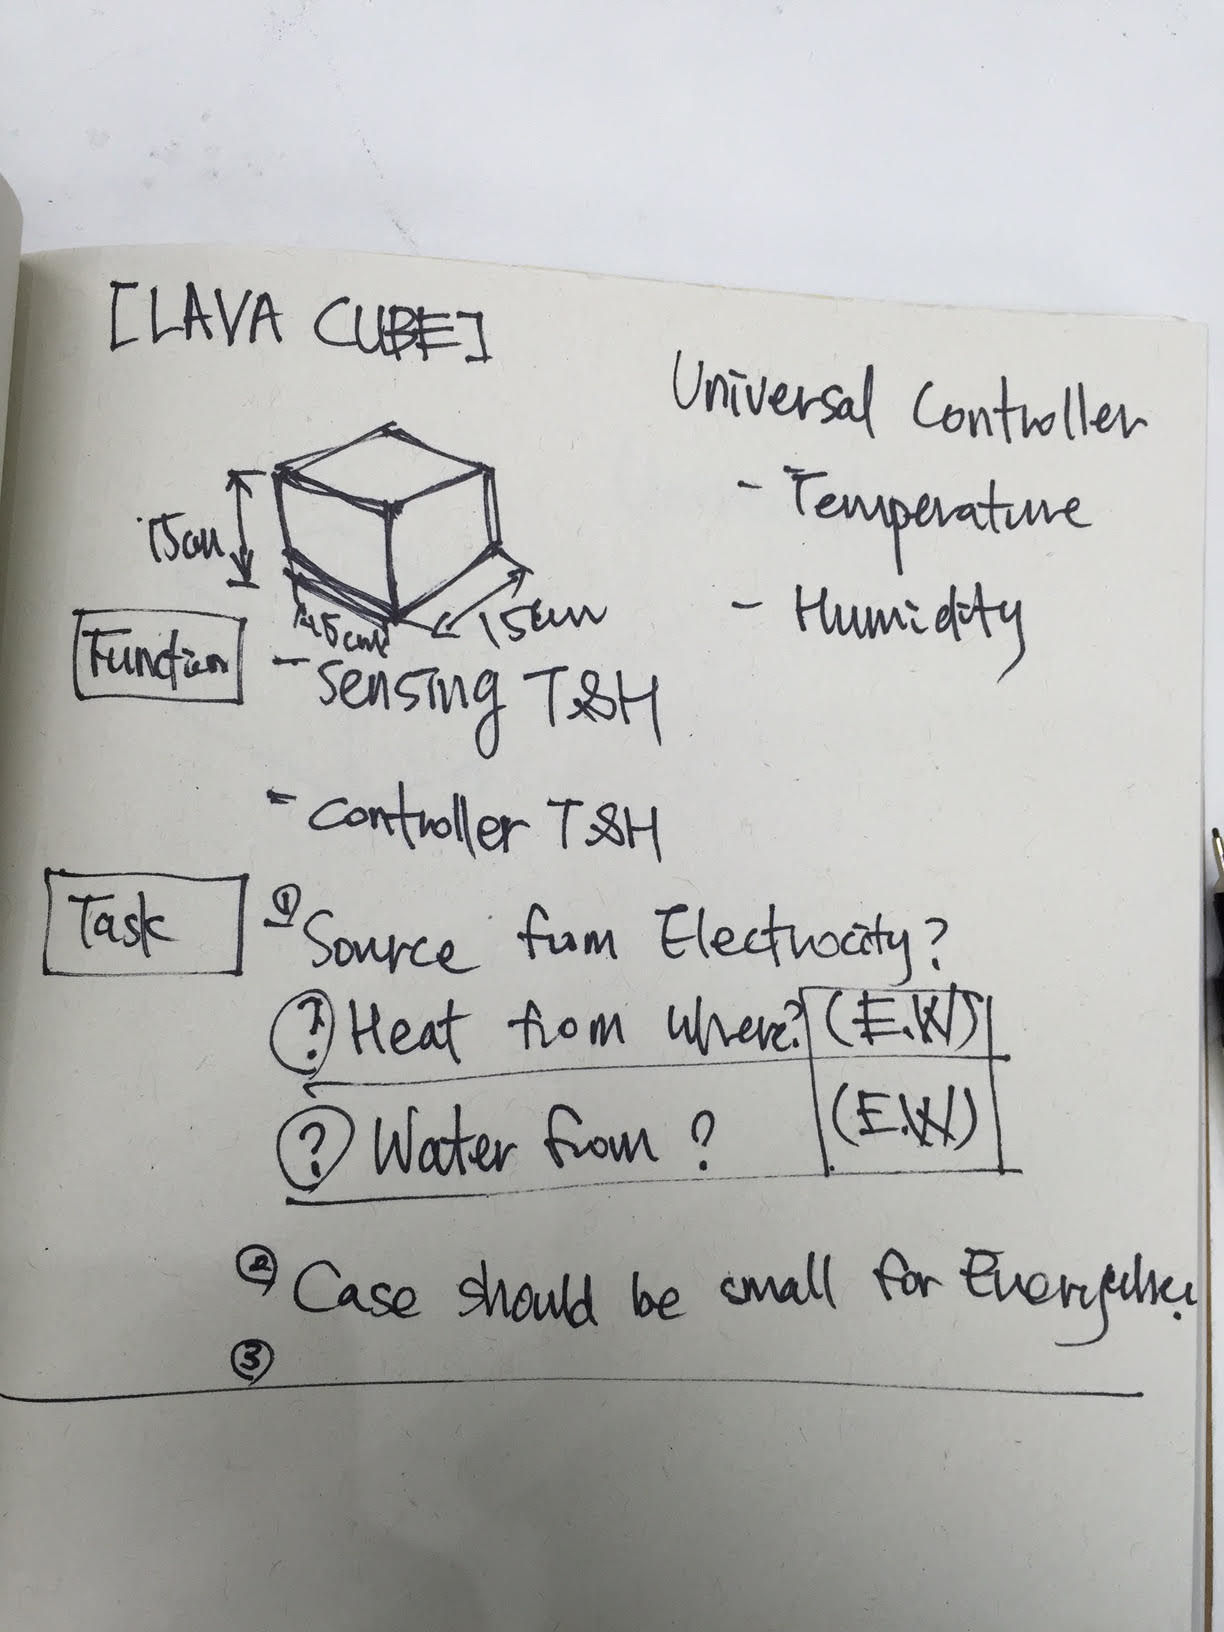 [LAVA CUBE]
Universal Controller
- Temperature
- Humidity
15cm
15cm
15cm
Function
- Sensing T&H
- controller T&H
Task
① Source from Electrocity?
? Heat from where? (E.W)
? Water from? (E.W)
② Case should be small for
③